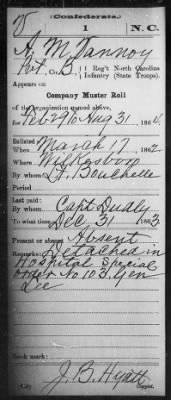 (Confederate.)
V 1 N.C.
A. M. Vannoy
Pvt, Co. B, 1 Reg't North Carolina
Infantry (State Troops).
Appears on
Company Muster Roll
of the organization named above,
for Feb 29 to Aug 31, 1864.
Enlisted
When March 17, 1862
Where Wilkesboro
By whom Lt. Bouchelle
Period
Last paid:
By whom Capt Dudly
To what time Dec 31, 1863
Present or absent Absent
Remarks: Detached in
Hospital Special
order No 103. Gen
Lee
Book mark:
J. B. Hyatt
Copyist.